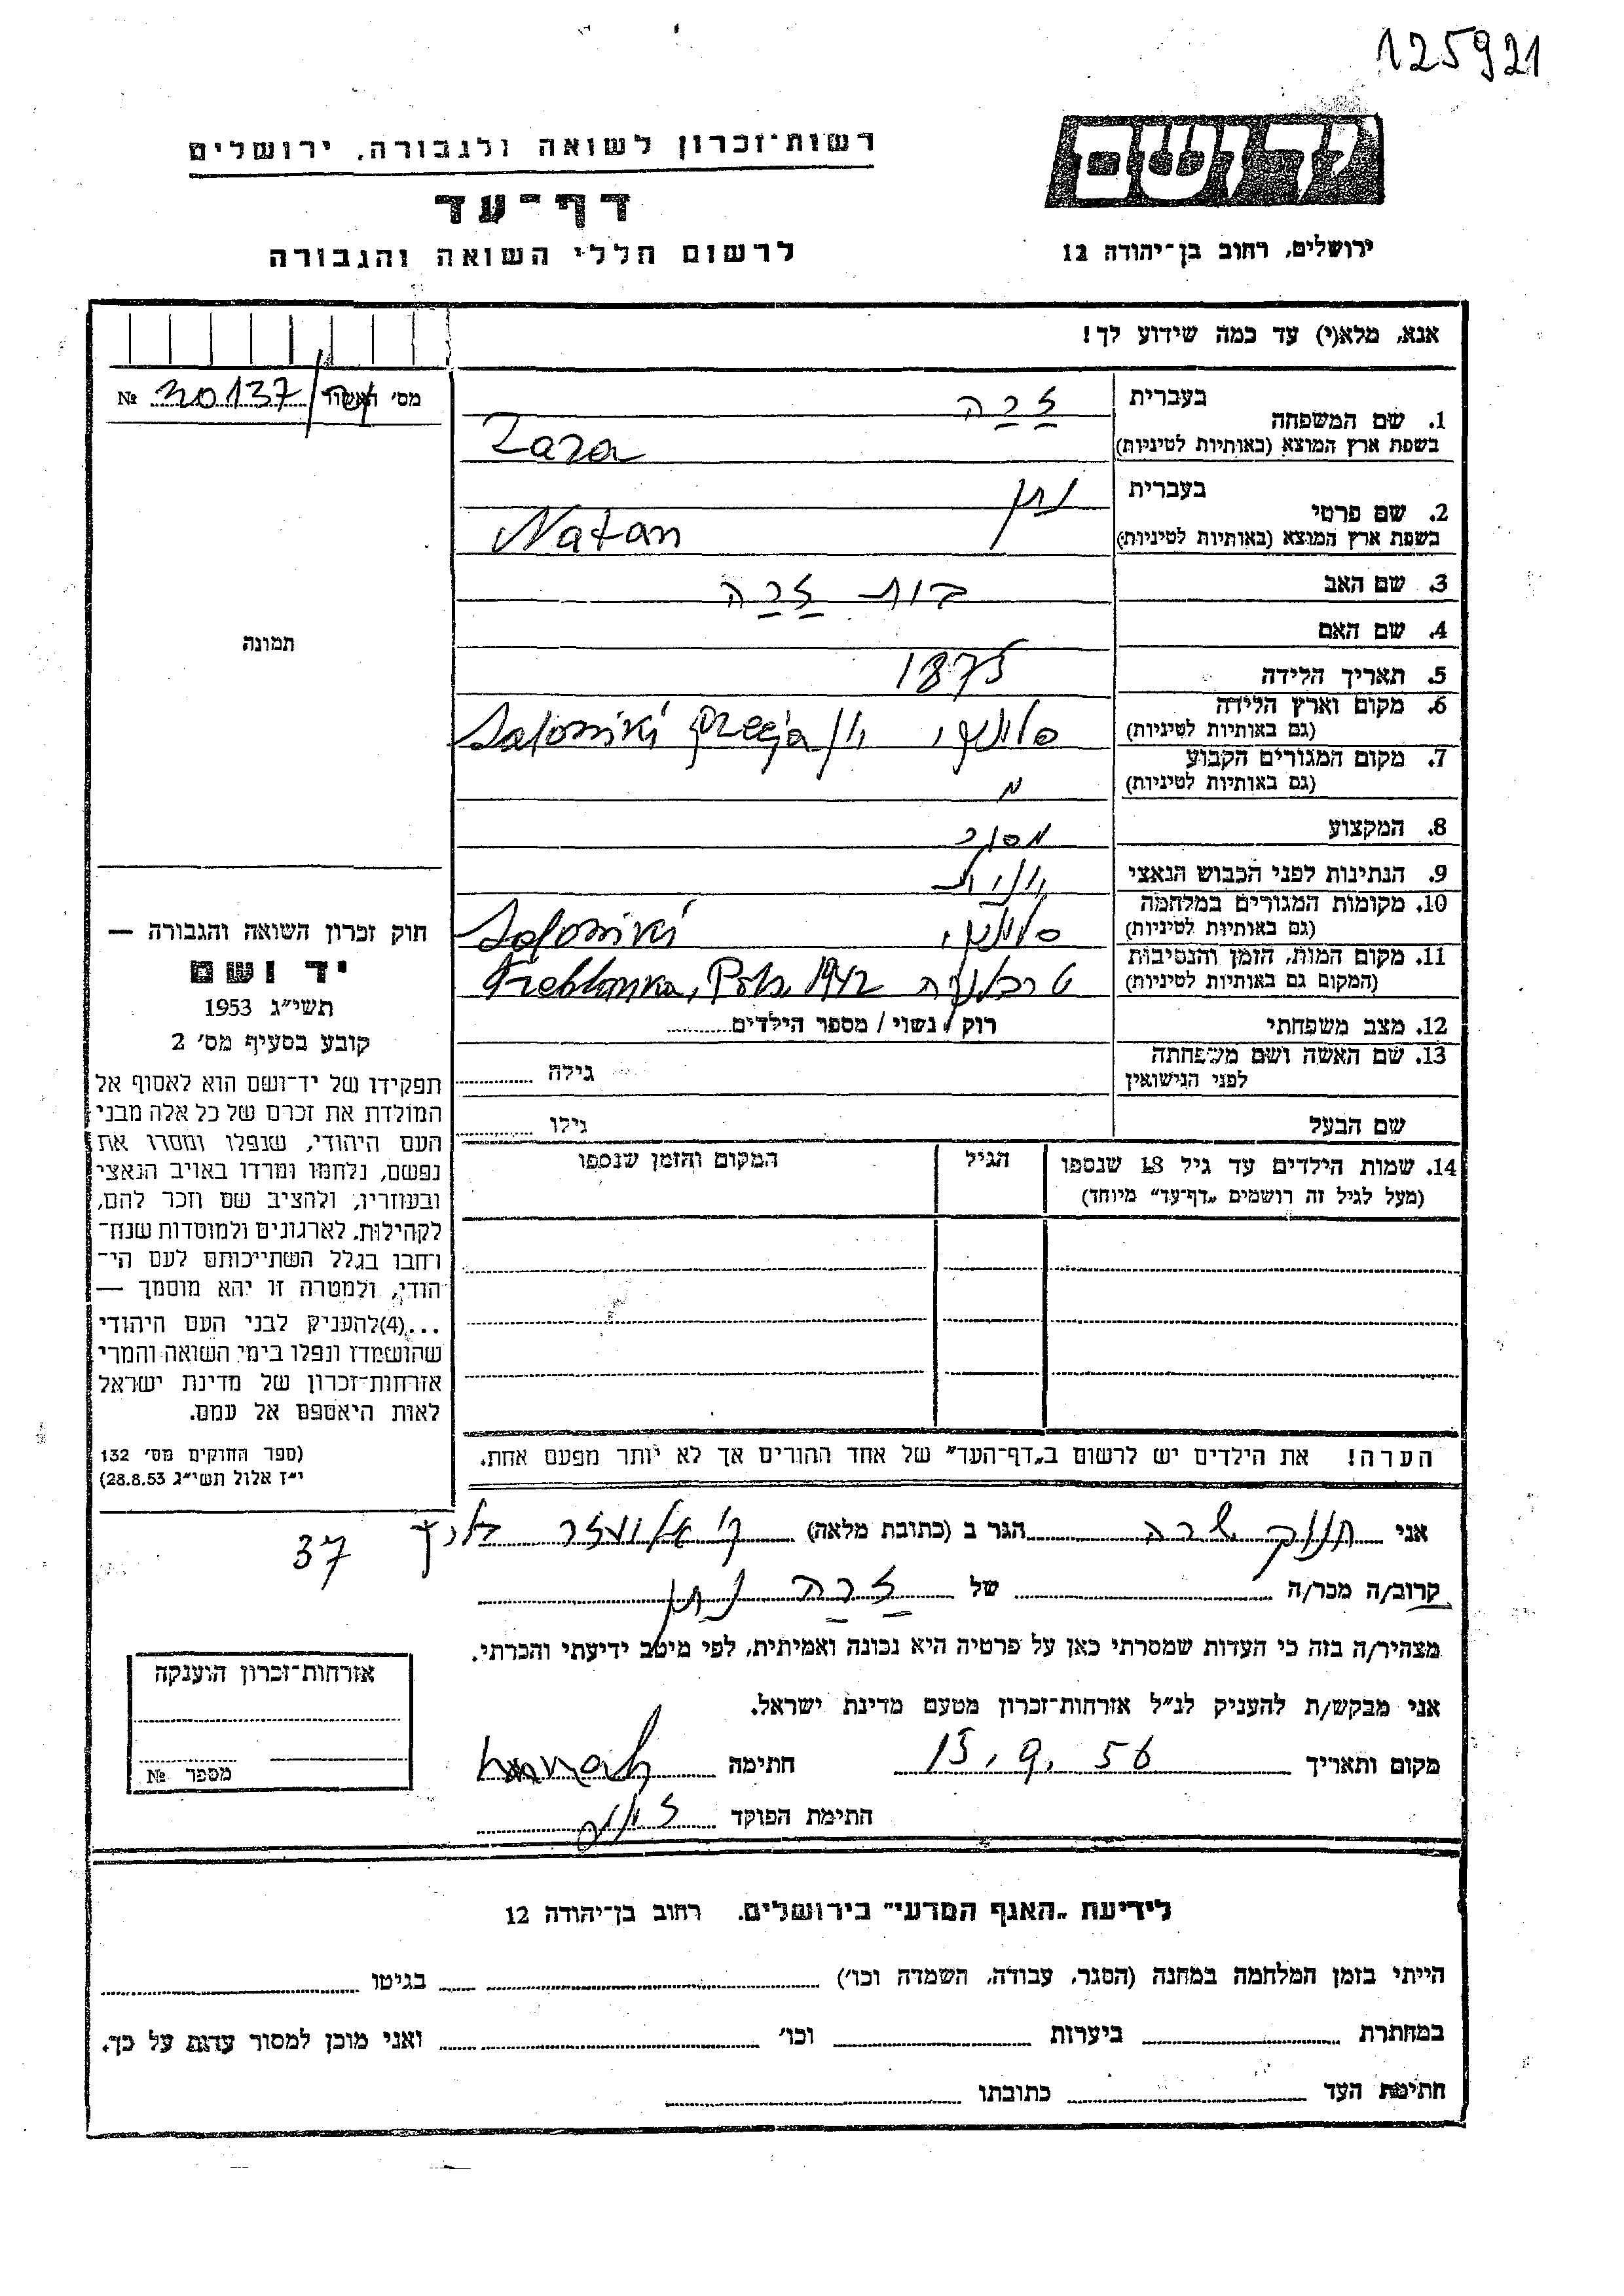 125921
יד ושם
רשות־זכרון לשואה ולגבורה, ירושלים
דף־עד
לרשום חללי השואה והגבורה
ירושלים, רחוב בן־יהודה 12
אנא, מלא(י) עד כמה שידוע לך!
מס' האשור № 30137/
בעברית זרה
1. שם המשפחה
בשפת ארץ המוצא (באותיות לטיניות) Zara
בעברית נתן
2. שם פרטי
בשפת ארץ המוצא (באותיות לטיניות) Natan
3. שם האב זרה
4. שם האם
תמונה
5. תאריך הלידה 1875
6. מקום וארץ הלידה
(גם באותיות לטיניות) סלוניקי יון Saloniki grecja
7. מקום המגורים הקבוע
(גם באותיות לטיניות)
8. המקצוע
9. הנתינות לפני הכבוש הנאצי יונית
10. מקומות המגורים במלחמה
(גם באותיות לטיניות) סלוניקי Saloniki
11. מקום המות, הזמן והנסיבות
(המקום גם באותיות לטיניות) טרבלינקה Treblinka, Pols. 1942
12. מצב משפחתי רוק / נשוי / מספר הילדים
13. שם האשה ושם משפחתה
לפני הנישואין גילה
שם הבעל גילו
14. שמות הילדים עד גיל 18 שנספו הגיל המקום והזמן שנספו
(מעל לגיל זה רושמים „דף־עד״ מיוחד)
הערה! את הילדים יש לרשום ב„דף־העד״ של אחד ההורים אך לא יותר מפעם אחת.
חוק זכרון השואה והגבורה —
יד ושם
תשי״ג 1953
קובע בסעיף מס׳ 2
תפקידו של יד־ושם הוא לאסוף אל
המולדת את זכרם של כל אלה מבני
העם היהודי, שנפלו ומסרו את
נפשם, נלחמו ומרדו באויב הנאצי
ובעוזריו, ולהציב שם וזכר להם,
לקהילות, לארגונים ולמוסדות שנח־
רחבו בגלל השתייכותם לעם הי־
הודי, ולמטרה זו יהא מוסמך —
...(4)להעניק לבני העם היהודי
שהושמדו ונפלו בימי השואה והמרי
אזרחות־זכרון של מדינת ישראל
לאות היאספם אל עמם.
(ספר החוקים מס׳ 132
י״ז אלול תשי״ג 28.8.53)
אני הגר ב (כתובת מלאה) 37
קרוב/ה מכר/ה של זרה נתן
מצהיר/ה בזה כי העדות שמסרתי כאן על פרטיה היא נכונה ואמיתית, לפי מיטב ידיעתי והכרתי.
אני מבקש/ת להעניק לנ״ל אזרחות־זכרון מטעם מדינת ישראל.
מקום ותאריך 15.9.56 חתימה
חתימת הפוקד
אזרחות־זכרון הוענקה
מספר №
לידיעת „האגף המדעי״ בירושלים. רחוב בן־יהודה 12
הייתי בזמן המלחמה במחנה (הסגר, עבודה, השמדה וכו׳) בגיטו
במחתרת ביערות וכו׳ ואני מוכן למסור עדות על כך.
חתימת העד כתובתו